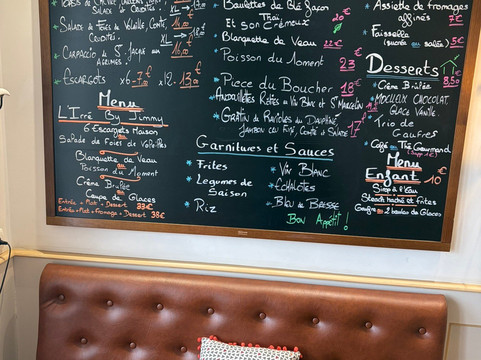 Salade de Foies de Volaille, Comté,
Crudités.
XL → 18.50
Carpaccio de S. Jacques au
Escargots x6 7.00€ x12. 13.00€
Menu
L'Irré By Jimmy
6 Escargots Maison
ou
Salade de Foies de Volaille
Blanquette de Veau
ou
Poisson du Moment
Crème Brûlée
ou
Coupe de Glaces
Entrée + Plat + Dessert 33€
Entrée + Plat + Fromage + Dessert 38€
Ravioles du Glé Façon
Thaï
20€
Et son Crémeux
Blanquette de Veau 22€
Poisson du Moment 23€
Piece du Boucher 18€
Andouillettes Rôties au Vin Blanc et St Marcellin
Gratin de Ravioles du Dauphiné
Jambon cru Fumé, Comté & Salade 17€
Garnitures et Sauces
* Frites
* Légumes de
Saison
* Riz
* Vin Blanc
* Echalotes
* Bleu de Bresse
Bon Appétit !
Assiette de fromages
affinés 7€
Faisselle
(sucrée ou salée) 5€
Desserts
8,50€
Crème Brûlée
Moelleux Chocolat
Glace Vanille.
Trio de
Gaufres
Café ou Thé Gourmand
Menu
Enfant 10€
Sirop à l'Eau
Steack haché et frites
Gaufre ou 2 boules de Glaces